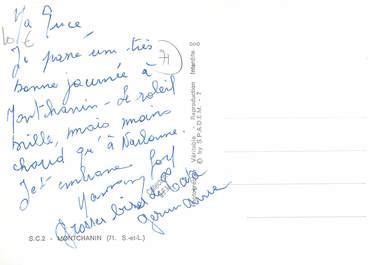 Ma Puce
Je passé une très
bonne journée à
Montchanin - Le soleil
brille, mais moins
chaud qu'à Narbonne.
Je t'embrasse fort
Grosses bises de tata
germaine
71
S.C.2 - MONTCHANIN (71. S.-et-L.)
Véritable - Reproduction Interdite
© by S.P.A.D.E.M. - ?